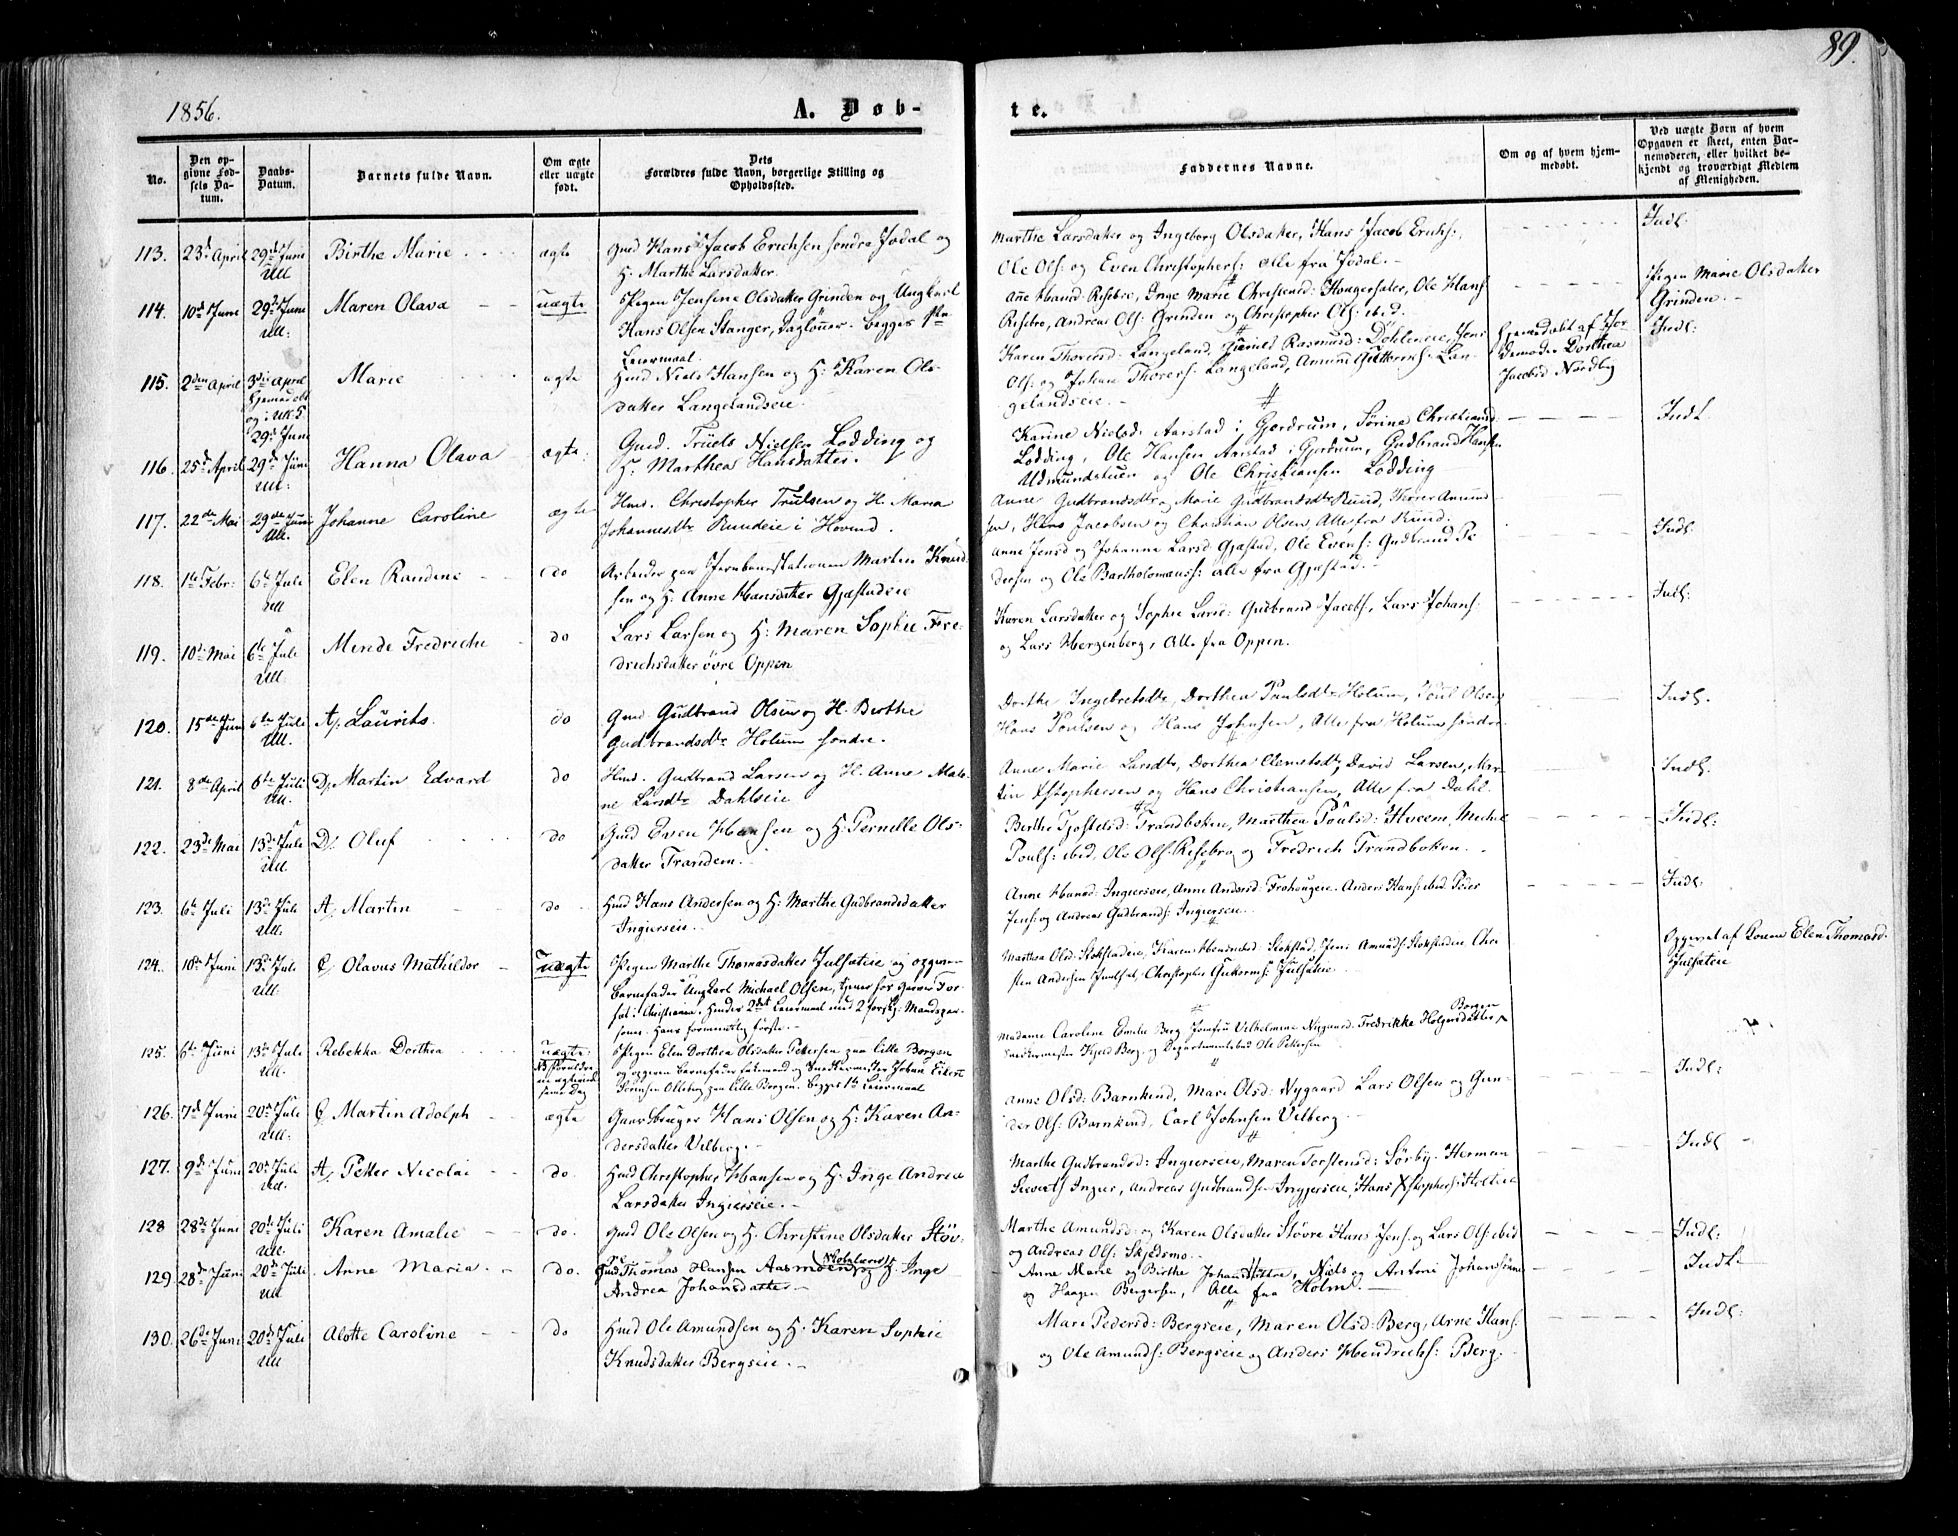 89.
1856.
A. Døb-
te.
No.
Den op-
givne Fød-
sels Da-
tum.
Daabs-
Datum.
Barnets fulde Navn.
Om ægte
eller uægte
født.
Dets
Forældres fulde Navn, borgerlige Stilling og
Opholdssted.
Faddernes Navne.
Om og af hvem hjem-
medøbt.
Ved uægte Børn af hvem
Opgaven er skeet, enten Bar-
nemoderen, eller hvilket be-
kjendt og troværdigt Medlem
af Menigheden.
113. 23de April 29de Juni Birthe Marie ægte Gmd Hans Jacob Erichsen søndre Jodal og
Ull H: Marthe Larsdatter.
Marthe Larsdatter og Ingeborg Olsdatter, Hans Jacob Erichs:,
Ole Ols: og Even Christophers: alle fra Jodal.
Indl
114. 10de Juni 29de Juni Maren Olava uægte Pigen Jensine Olsdatter Grinden og Ungkarl
Ull. Hans Olsen Stanger, Dagløner. begges 1ste
Leiermaal.
Ane Hansd: Risebro, Inge Marie Christensd: Kongersæter, Ole Hans:
Risebro, Andreas Ols: Grinden og Christopher Ols: ibid.
Pigen Marie Olsdatter
Grinden.
115. 2den April 3die April Marie ægte Hmd Niels Hansen og H: Karen Ols-
Hjemmedøbt datter Langelandseie.
og i Ull. K.
29de Juni
Karen Thorersd: Langeland, Rasmusd: Døhleneie, Jens
Ols: og Johan Thorers: Langeland, Amund Guttorms: Lan-
gelandseie.
Hjemmedøbt af Jor-
demoder Dorthea
Jacobsd Nordby
Indl:
116. 25de April 29de Juni Hanna Olava ægte. Gmd. Truels Nielsen Lodding og
Ull: H. Marthea Hansdatter.
Karine Nielsd: Aarstad i Gjerdrum, Sørine Christiansd:
Lodding, Ole Hansen Aarstad i Gjerdrum, Gudbrand Hansen
Udmundstuen og Ole Christiansen Lodding
Indl.
117. 22de Mai 29de Juni Johanne Caroline ægte Hmd. Christopher Trulsen og H. Maria
Ull. Johannesdtr Rundeie i Hovind.
Anne Gudbrandsdtr og Marie Gudbrandsdtr Rund, Thorer Amund-
sen, Hans Jacobsen og Christian Olsen, Alle fra Rund.
Indl.
118. 1ste Febr: 6te Juli Elen Randine do Arbeider paa Jernbanestationen Martin Knud-
Ull sen og H: Anne Hansdatter Gjæstadeie
Anne Jensd og Johanne Larsd Gjæstad, Ole Evens: Gudbrand Pe-
dersen og Ole Bartholomæuss: alle fra Gjæstad.
Indl:
119. 10de Mai 6te Juli Minde Fredriche do Lars Larsen og H: Maren Sophie Fre-
Ull. drichsdatter øvre Oppen
Karen Larsdatter og Sophie Larsd: Gudbrand Jacobs:, Lars Johans:
og Lars Hergenberg, Alle fra Oppen.
120. 15de Juni 6te Juli A, Laurits. do Gmd. Gudbrand Olsen og H. Berthe
Ull. Gudbrandsdtr Holum søndre.
Dorthe Ingebretsdtr, Dorthea Paulsdtr Holum, Poul Olsen,
Hans Poulsen og Hans Johnsen, Alle fra Holum søndre
Indl.
121. 8de April 6te Juli D, Martin Edvard do Hmd. Gudbrand Larsen og H. Anne Male-
Ull. ne Larsdtr Dahlseie
Anne Marie Larsdtr, Dorthea Clemetsdtr, David Larsen, Mar-
tin Xstophersen og Hans Christiansen, Alle fra Dahl.
Indl.
122. 23de Mai 13de Juli D, Oluf do Gmd Even Hansen og H: Pernille Ols-
Ull datter Trandem.
Berthe Tjostelsd: Trandbøken, Marthea Poulsd: Hveem, Michel
Pouls: ibid, Ole Ols: Risebro og Fredrich Trandbøken.
Indl:
123. 6te Juli 13de Juli A, Martin do Hmd Hans Andersen og H: Marthe Gudbrandsdatter
Ull. Ingierseie.
Anne Hansd: Ingierseie, Anne Andersd: Frohaugeie. Anders Hans: ibid Peder
Jens: og Andreas Gudbrands: Ingierseie.
Indl:
124. 10de Juni 13de Juli C, Olavus Mathildor uægte Pigen Marthe Thomasdatter Julsæteie og opgiven
Ull Barnefader Ungkarl Michael Olsen, tjener hos
i Christiania. Hendes 2det Leiermaal med 2 forskj: Mandsper-
soner. Hans formentlig første.
Marthea Olsd: Slokstadeie, Karen Slokstad, Jens Amunds: Slokstadeie, Chri-
sten Andersen Christopher Guttorms: Julsæteie
Opgivet af Konen Elen Thomasd.
Julsæteie
125. 6te Juni 13de Juli Rebekka Dorthea uægte. Pigen Elen Dorthea Olsdatter Pettersen paa lille Borgen
Ull. NB Forældre- og opgiven Barnefader Enkemand og Snedkermester Johan Eilert
ne ægteviede Olleberg paa lille Borgen. Begges 1ste Leiermaal
samme Dag
Madame Caroline Emilie Berg Jomfru Vilhelmine Nygaard. Fredrikke Holgersdatter Borgen
Snedkermester Kjeld Berg, og Departementsbud Ole Pettersen
126. 7de Juni 20de Juli C, Martin Adolph ægte Gaardbruger Hans Olsen og H: Karen An-
Ull: dersdatter Vilberg.
Anne Olsd: Barnkind, Mari Olsd: Nygaard Lars Olsen og Gun-
der Ols: Barnkind, Carl Johnsen Vilberg
Indl:
127. 9de Juni 20de Juli A, Petter Nicolai do. Hmd Christopher Hansen og H: Inge Andrea
Ull. Larsdatter Ingierseie.
Marthe Gudbrandsd: Ingierseie, Maren Torstensd: Sørby. Herman
Siverts Ingier, Andreas Gudbrandsen Ingjerseie, Hans Xstophers: Holteie
Indl
128 28de Juni 20de Juli Karen Amalie do. Gmd Ole Olsen og H. Christine Olsdatter Støv-
Ull. re
Marthe Amundsd: og Karen Olsdatter Støvre Hans Jens: og Lars Ols: ibid
og Andreas Ols: Skjedsmo.
Indl:
129. 28de Juni 20de Juli Anne Maria. do. Hmd Thomas Hansen Aasmoen og H. Inge
Ull Andrea Johansdatter
Anne Marie og Birthe Johansdøttre, Niels og Antoni Johanssønner
og Haagen Bergersen, Alle fra Holm.
Indl:
130. 26de Juni 20de Juli Alotte Caroline do Hmd Ole Amundsen og H. Karen Sophie
Ull Knudsdatter Bergseie.
Mari Pedersd: Bergseie, Maren Olsd: Berg, Arne Hans:
og Ole Amunds: Bergseie og Anders Hendrichs: Berg.
Indl: